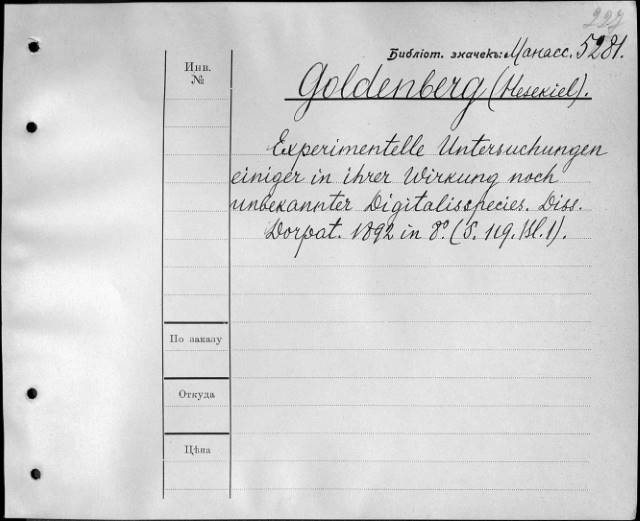 227
Библіот. значекъ: Манасс. 5281.
Инв.
№
Goldenberg (Hesekiel).
Experimentelle Untersuchungen
einiger in ihrer Wirkung noch
unbekannter Digitalisspecies. Diss.
Dorpat. 1892 in 8º. (S. 119. Bl. 1).
По заказу
Откуда
Цѣна